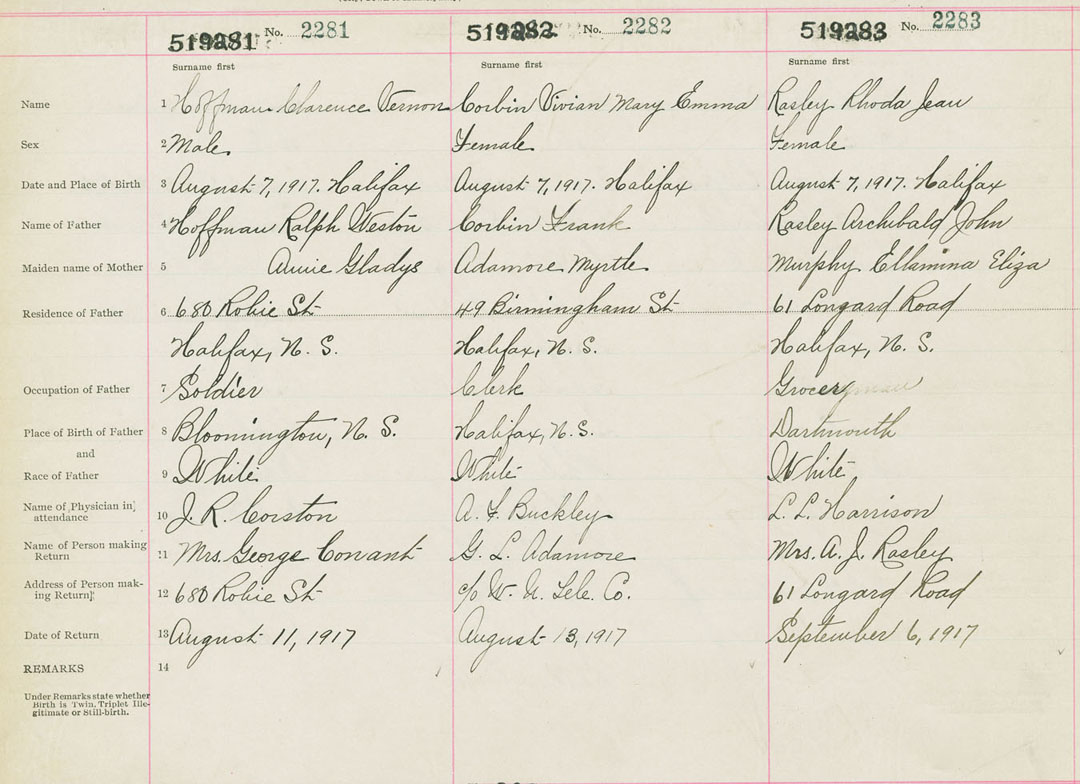 519281 No. 2281 519282 No. 2282 519283 No. 2283
Surname first Surname first Surname first
Name 1 Hoffman Clarence Vernon Corbin Vivian Mary Emma Rasley Rhoda Jean
Sex 2 Male Female Female
Date and Place of Birth 3 August 7, 1917. Halifax August 7, 1917. Halifax August 7, 1917. Halifax
Name of Father 4 Hoffman Ralph Weston Corbin Frank Rasley Archibald John
Maiden name of Mother 5 Annie Gladys Adamore Myrtle Murphy Ellamina Eliza
Residence of Father 6 680 Robie St 49 Birmingham St 61 Longard Road
Halifax, N. S. Halifax, N. S. Halifax, N. S.
Occupation of Father 7 Soldier Clerk Grocery
Place of Birth of Father 8 Bloomington, N. S. Halifax, N. S. Dartmouth
and
Race of Father 9 White White White
Name of Physician in
attendance 10 J. R. Corston A. F. Buckley L. L. Harrison
Name of Person making
Return 11 Mrs. George Conant G. L. Adamore Mrs. A. J. Rasley
Address of Person mak-
ing Return 12 680 Robie St c/o W. U. Tele. Co. 61 Longard Road
Date of Return 13 August 11, 1917 August 13, 1917 September 6, 1917
REMARKS 14
Under Remarks state whether
Birth is Twin, Triplet Ille-
gitimate or Still-birth.